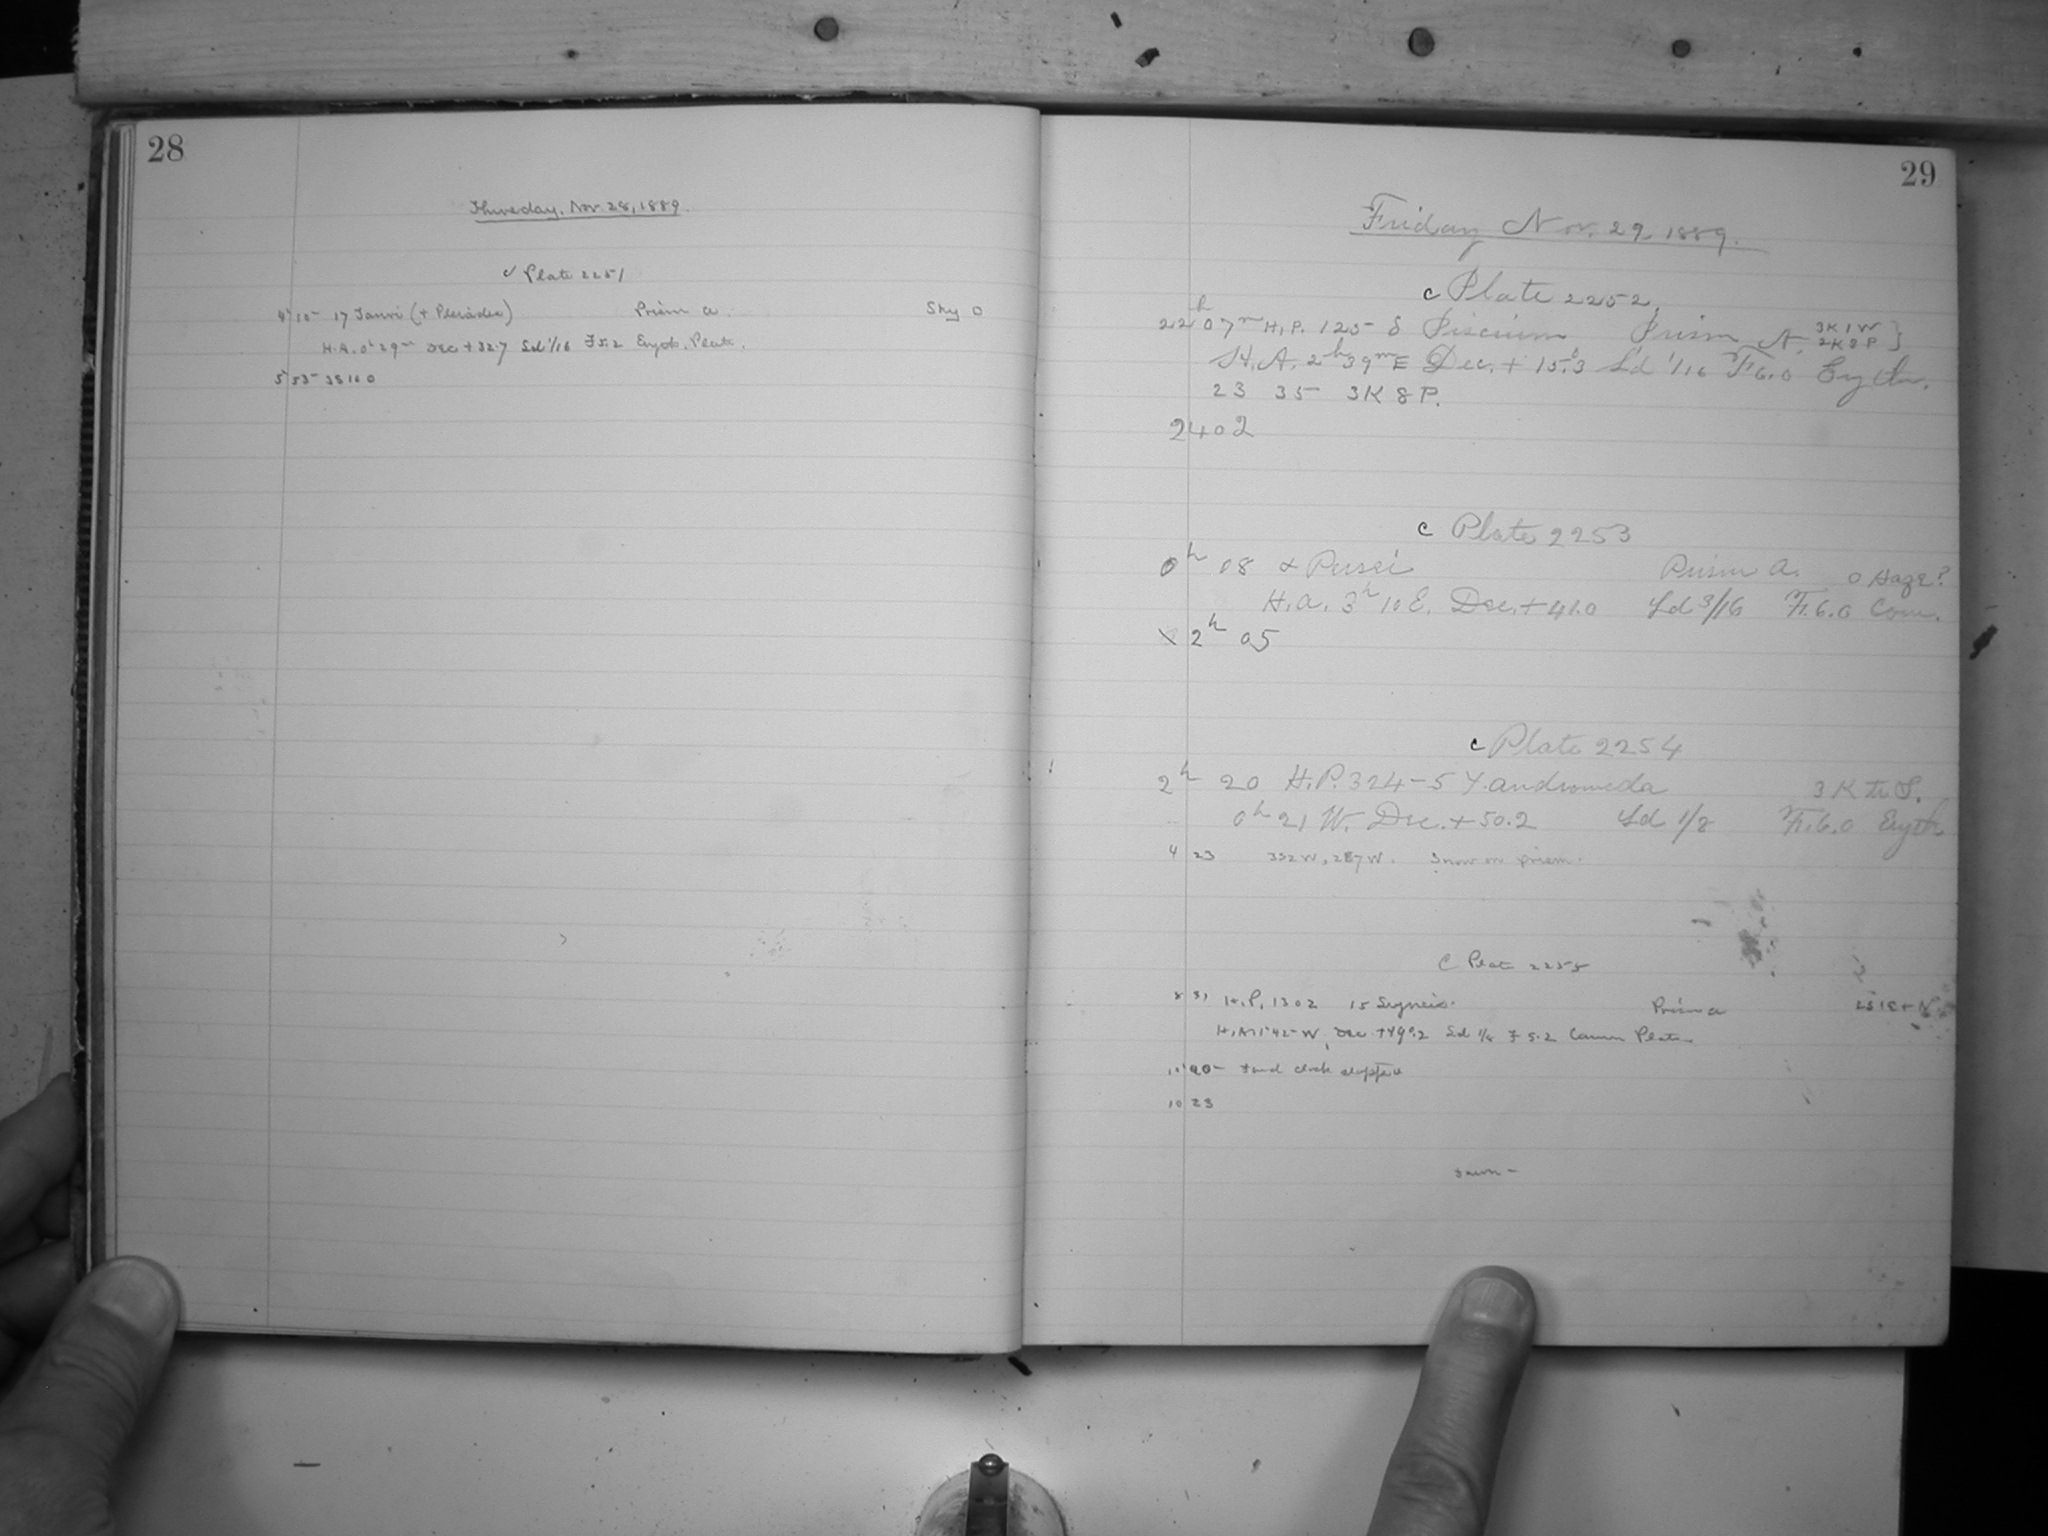 28
Thursday, Nov. 28, 1889.
c Plate 2251
17 Tauri (+ Pleiades) Prism a. Sky 0
H.A. 0h 29m Dec + 32.7 Sd 1/16 F 5.2 Eryth. Plate.
5 55 38160
29
Friday Nov. 29 1889.
c Plate 2252.
22h 07m H.P. 125 δ Piscium Prism A. 3K1W }
2K8P
H.A. 2h39m E Dec. + 15.3 Sd 1/16 F 6.0 Eryth.
23 35 3K 8P.
2402
c Plate 2253
0h 08 α Persei Prism A. 0 Haze?
H.A. 3h 10 E. Dec. + 41.0 Sd 3/16 F. 6.0 Com.
2h 05
c Plate 2254
2h 20 H.P. 324-5 γ. Andromeda 3K
0h 21 W. Dec. + 50.2 Sd 1/8 F. 6.0 Eryth
4 23 332W, 287W. Snow on prism.
C Plate 2255
8 51 H.P. 1302 15 Prism a
Dec +49°.2 Sd 1/8 F 5.2 Plate
Found clock stopped
10 23